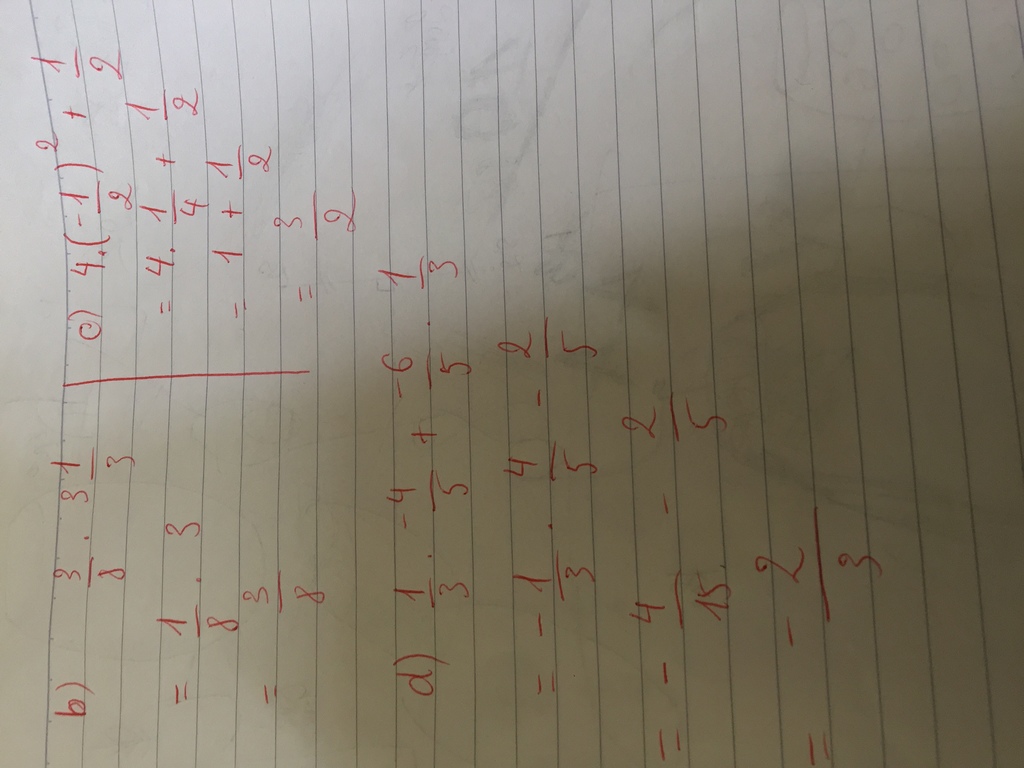 b) 3/8 . 3 1/3
= 1/8 . 3
= 3/8
c) 4.(-1/2)² + 1/2
= 4. 1/4 + 1/2
= 1 + 1/2
= 3/2
d) 1/3 . -4/5 + -6/5 . 1/3
= - 1/3 . 4/5 - 2/5
= - 4/15 - 2/5
= - 2/3